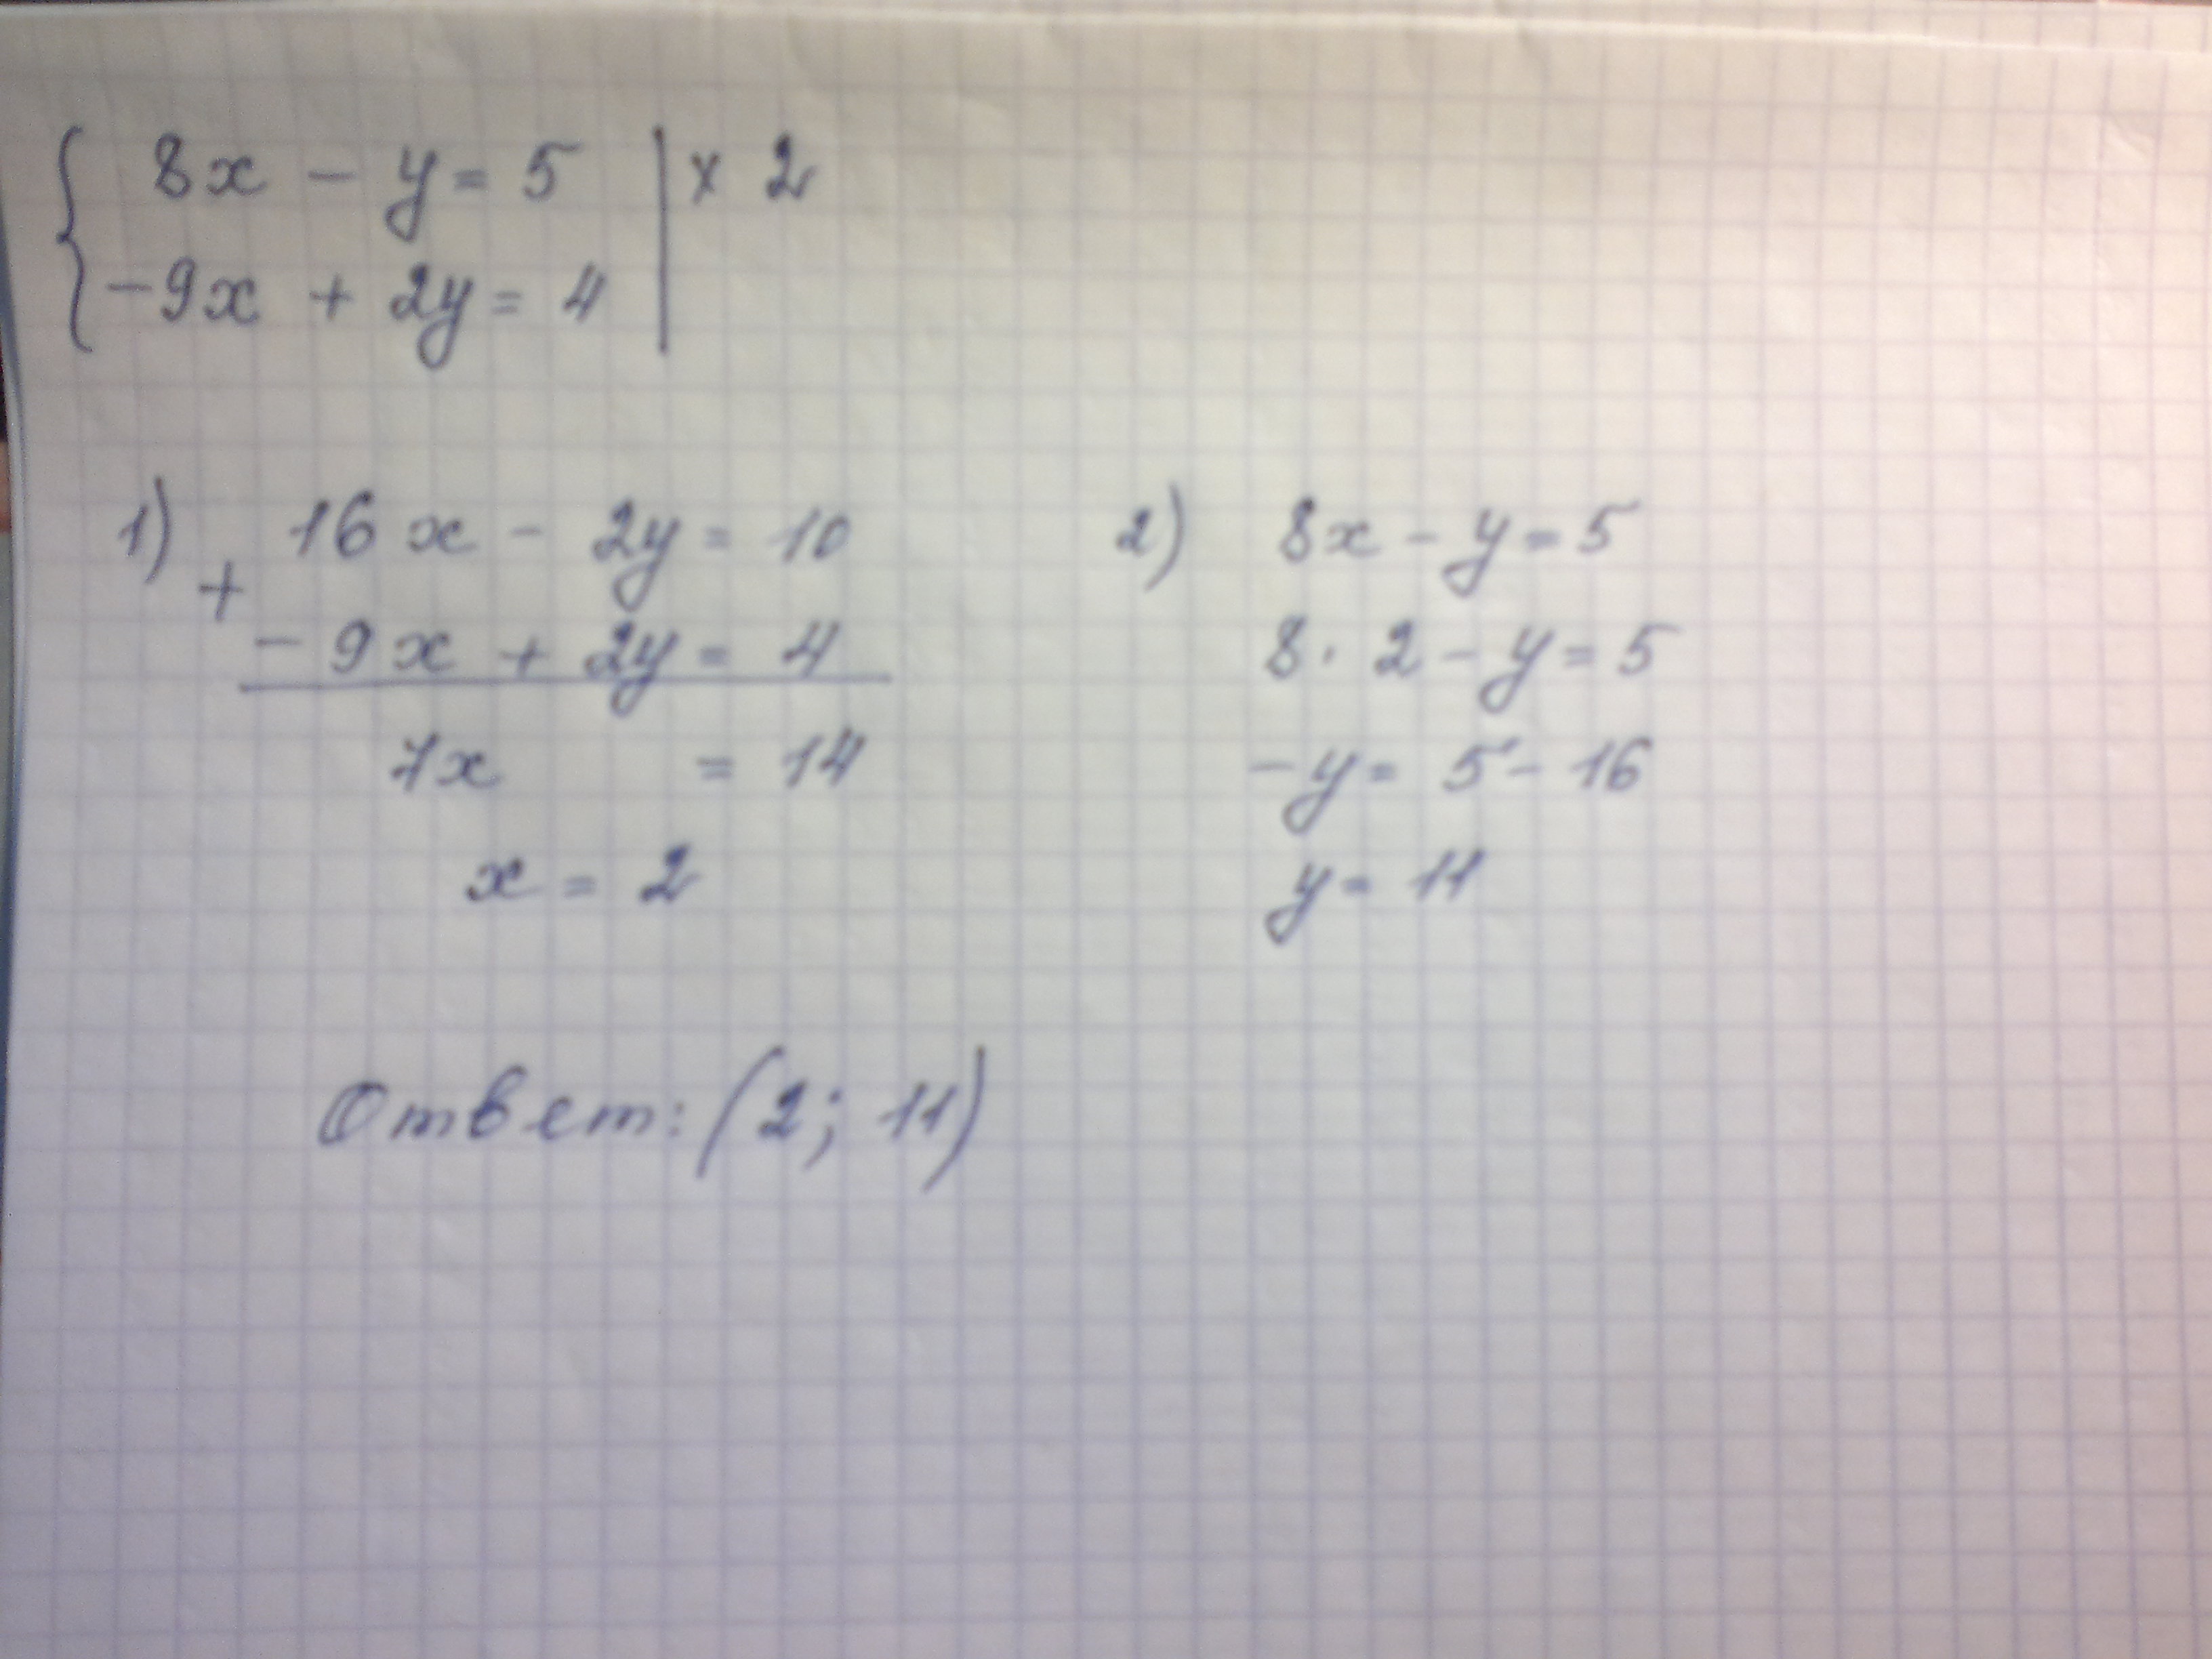 8x - y = 5 | × 2
-9x + 2y = 4
1) 16x - 2y = 10
+
-9x + 2y = 4
7x = 14
x = 2
2) 8x - y = 5
8 · 2 - y = 5
-y = 5 - 16
y = 11
Ответ: (2; 11)